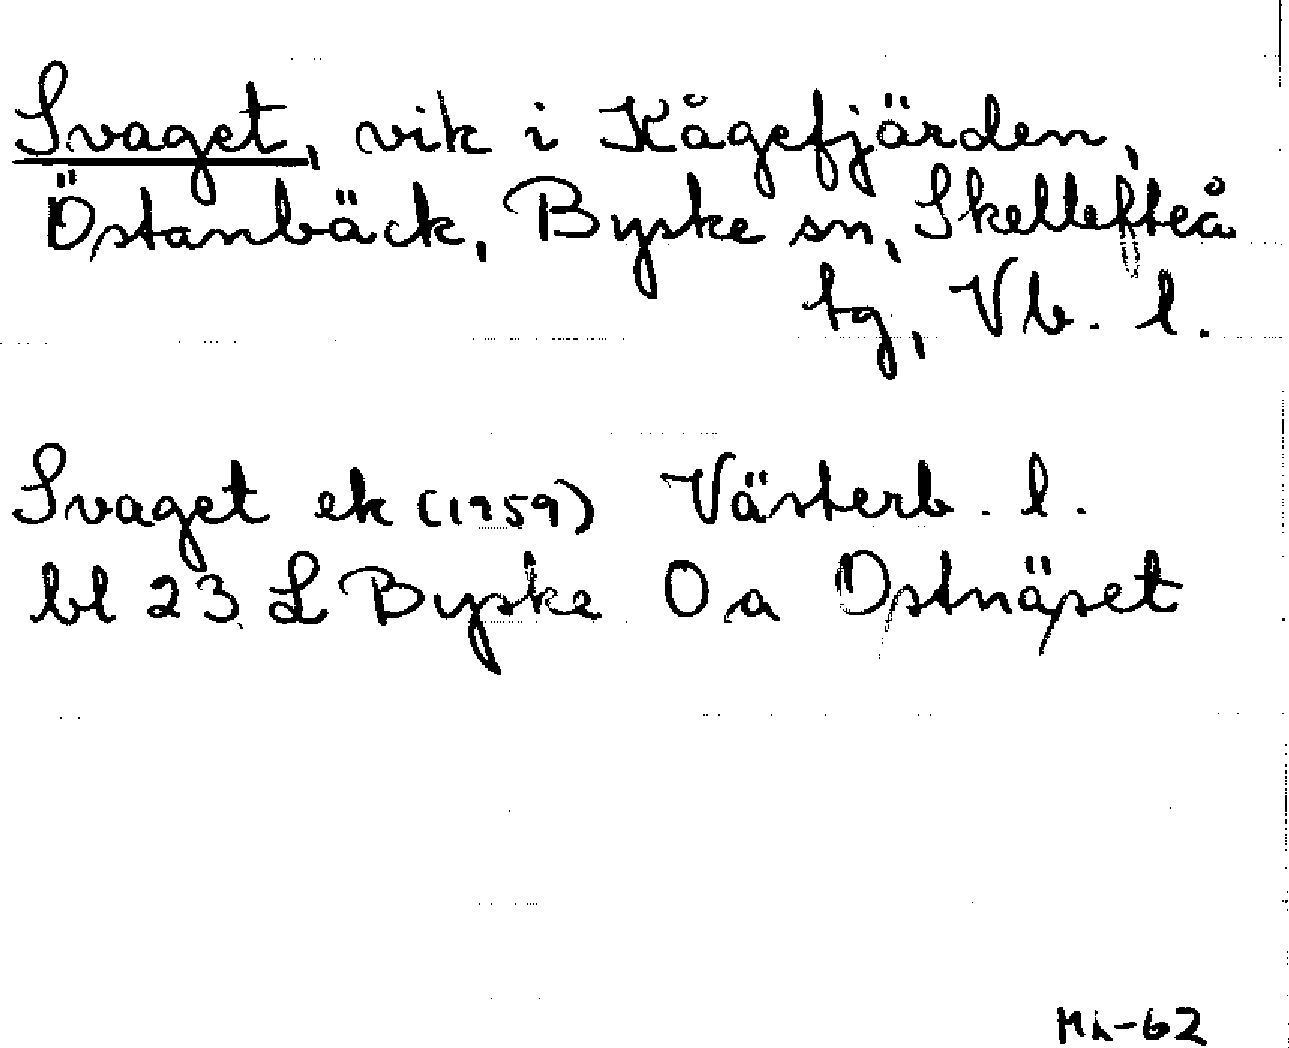 Svaget, vik i Kågefjärden,
Östanbäck, Byske sn, Skellefteå
tg, Vb. l.
Svaget ek (1959) Västerb. l.
bl 23 L Byske 0 a Ostnäset